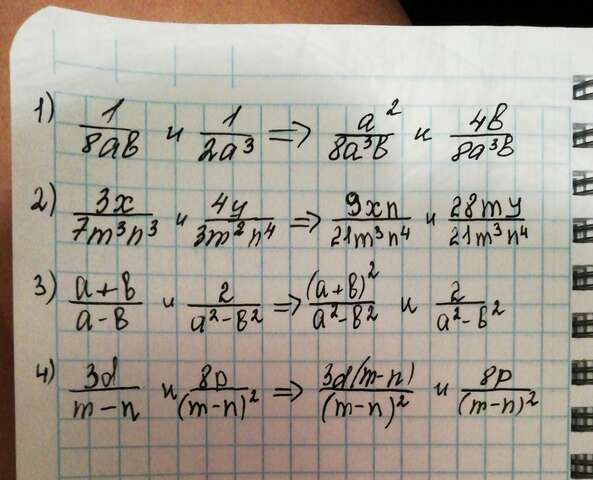 1) 1/8ab и 1/2a³ => a²/8a³b и 4b/8a³b
2) 3x/7m³n³ и 4y/3m²n⁴ => 9xn/21m³n⁴ и 28my/21m³n⁴
3) a+b/a-b и 2/a²-b² => (a+b)²/a²-b² и 2/a²-b²
4) 3d/m-n и 8p/(m-n)² => 3d(m-n)/(m-n)² и 8p/(m-n)²